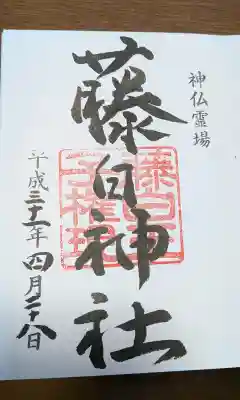 神仏霊場
藤白神社
藤白王
子権現
平成三十一年四月二十八日